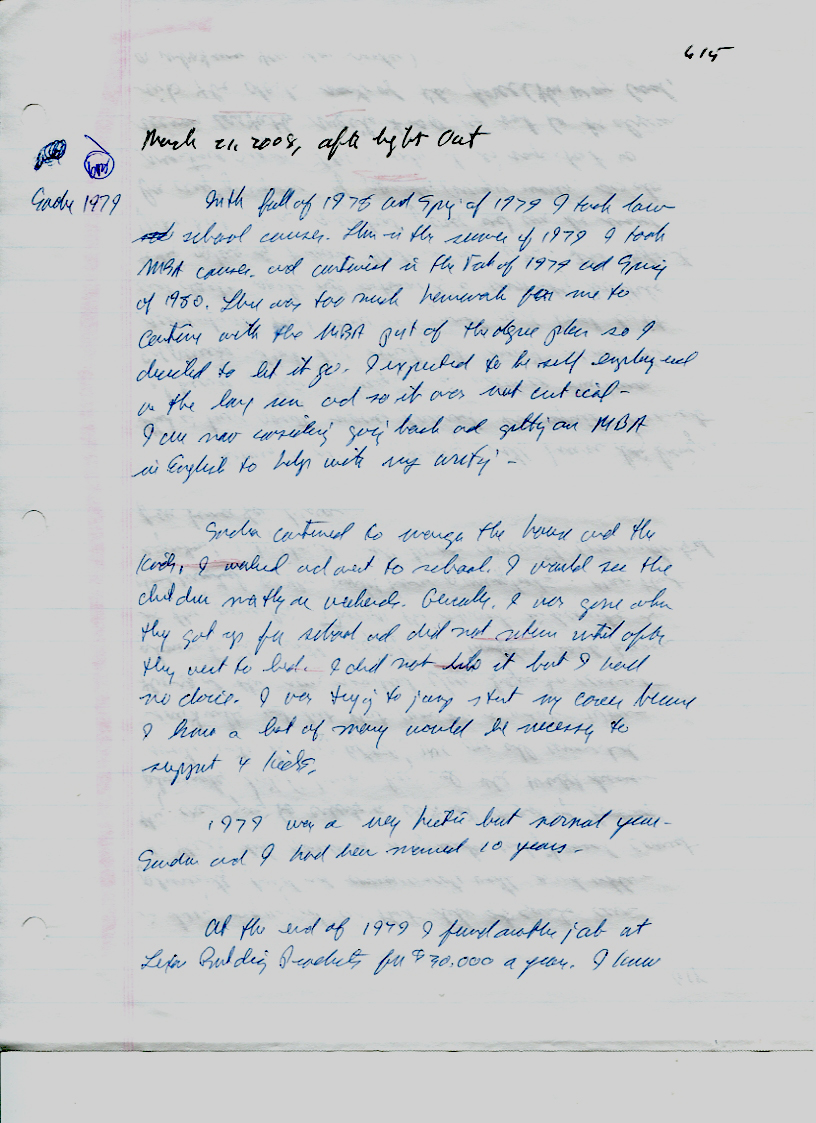 615
March 21, 2008, after light out
1979
In the fall of 1978 and Spring of 1979 I took law
school courses. Then in the summer of 1979 I took
MBA courses and continued in the Fall of 1979 and Spring
of 1980. There was too much homework for me to
continue with the MBA part of the degree plan so I
decided to let it go. I expected to be self employed
in the long run and so it was not critical -
I am now considering going back and getting an MBA
in English to help with my writing -
continued to manage the house and the
kids, I worked and went to school. I would see the
children mostly on weekends. Generally, I was gone when
they got up for school and did not return until after
they went to bed. I did not like it but I had
no choice. I was trying to jump start my career because
I knew a lot of money would be necessary to
support 4 kids.
1979 was a very hectic but normal year -
and I had been married 10 years -
At the end of 1979 I found another job at
Building Products for $30,000 a year. I knew